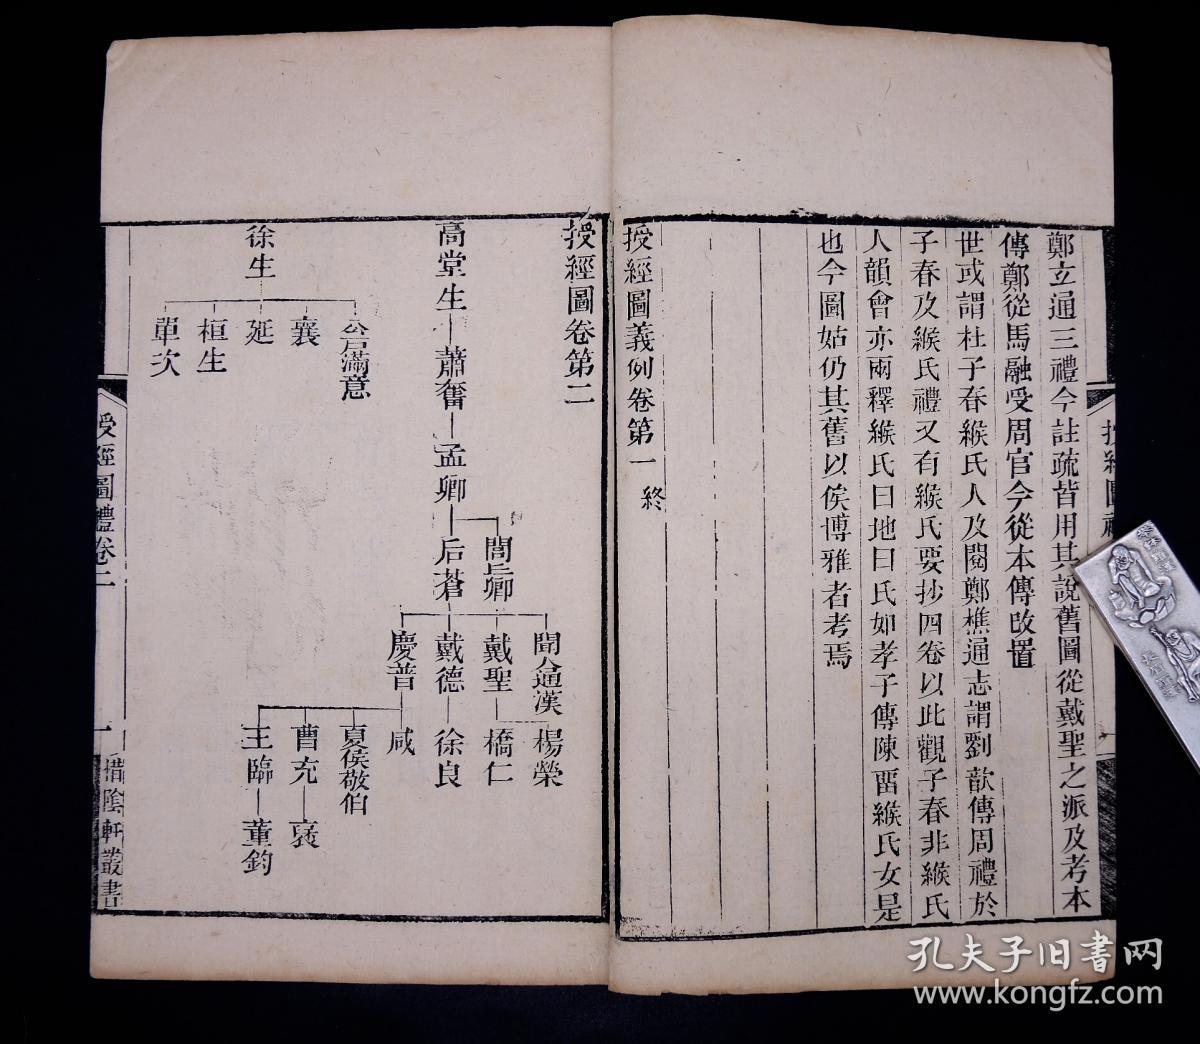 鄭立通三禮今註疏皆用其說舊圖從戴聖之派及考本
傳鄭從馬融受周官今從本傳改置
世或謂杜子春緱氏人及閱鄭樵通志謂劉歆傳周禮於
子春及緱氏禮又有緱氏要抄四卷以此觀子春非緱氏
人韻會亦兩釋緱氏曰地曰氏如孝子傳陳畱緱氏女是
也今圖姑仍其舊以俟博雅者考焉
授經圖義例卷第一 終
授經圖卷第二
高堂生 蕭奮 孟卿 后蒼 閭丘卿
聞人通漢 戴聖 戴德 慶普
楊榮 橋仁 徐良 咸
夏侯敬伯
曹充 褒
王臨 董鈞
徐生
公戶滿意
襄
延
桓生
單次
授經圖禮卷二
一
惜陰軒叢書
孔夫子旧书网
www.kongfz.com